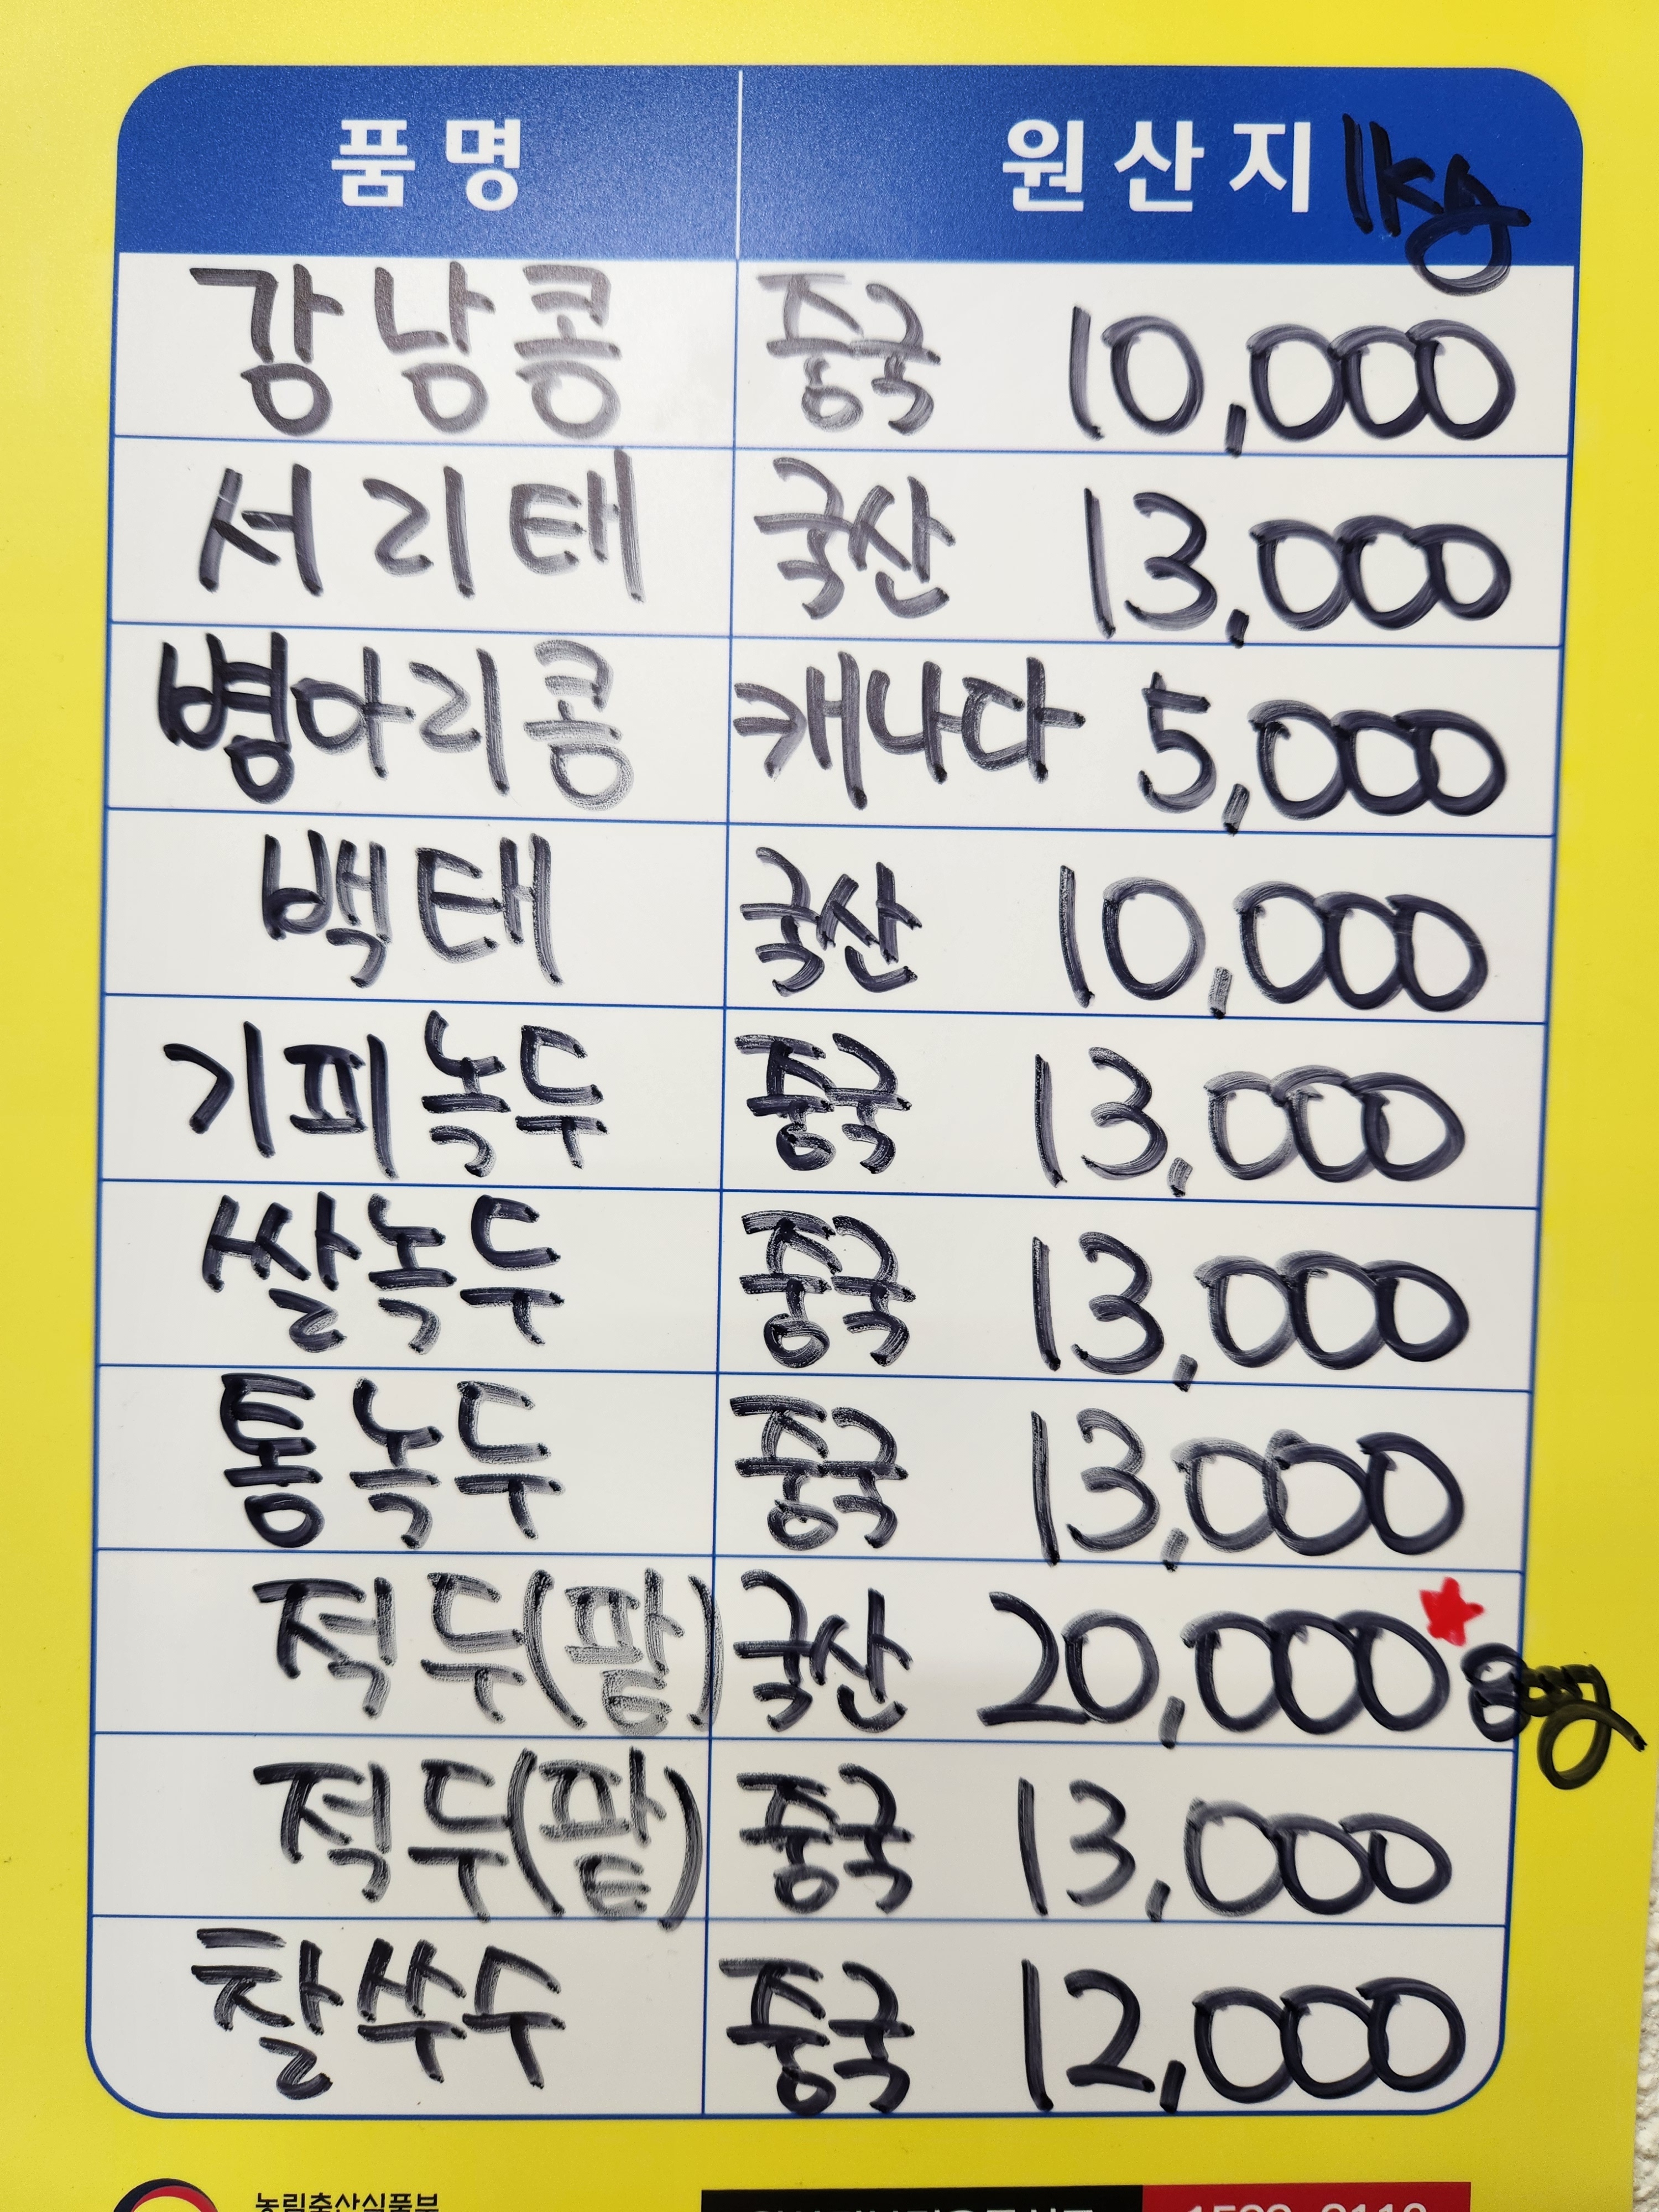 품명 원산지 1kg
강남콩 중국 10,000
서리태 국산 13,000
병아리콩 캐나다 5,000
백태 국산 10,000
기피녹두 중국 13,000
쌀녹두 중국 13,000
통녹두 중국 13,000
적두(팥) 국산 20,000
적두(팥) 중국 13,000
찰쑤수 중국 12,000
농림축산식품부